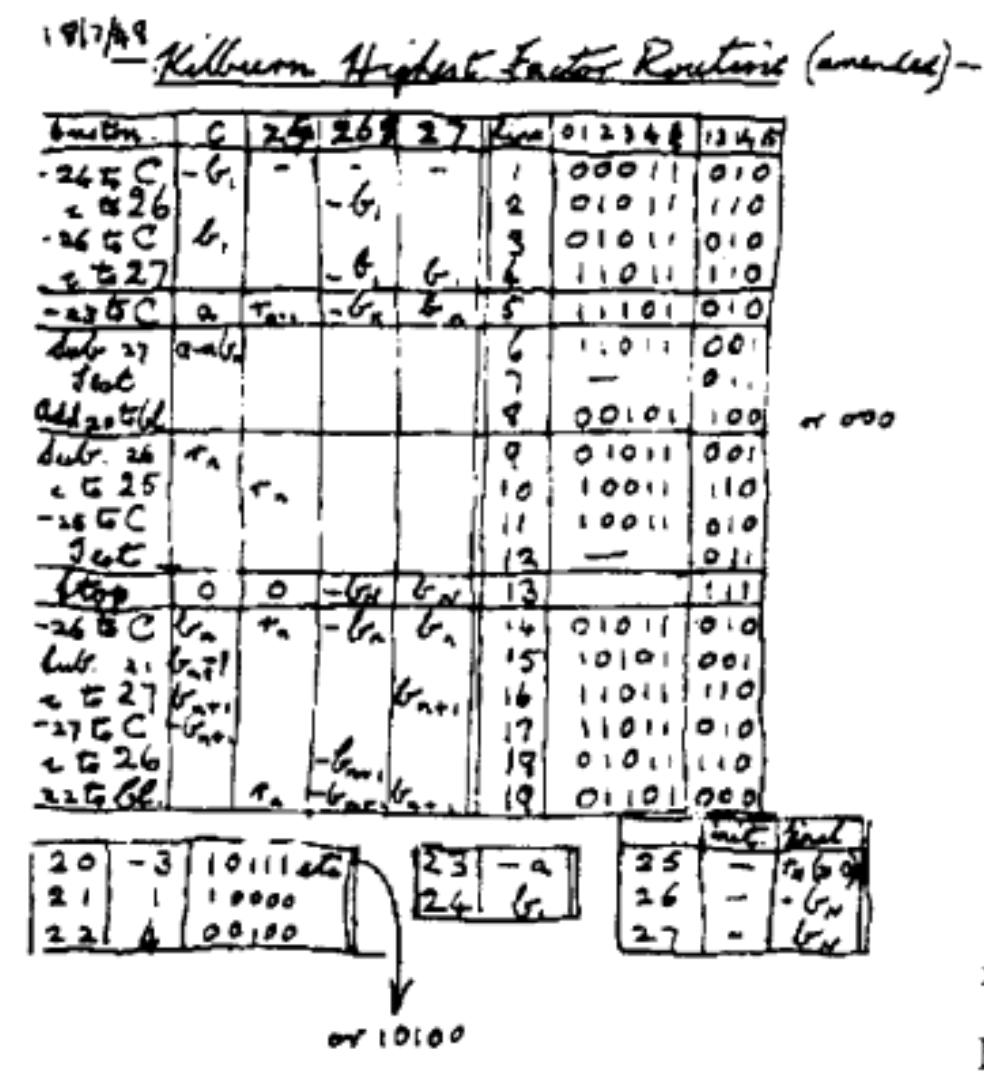 18/7/48 Kilburn Highest Factor Routine (amended) -
C 25 26 27 line 0 1 2 3 4 5 13 14 15
-24 to C -b1 - - - 1 00011 010
c to 26 -b1 2 01011 110
-26 to C b1 3 01011 010
c to 27 -b1 b1 4 11011 110
-23 to C a -bn bn 5 11101 010
Sub. 27 a-bn 6 11011 001
Test 7 — 011
Add 20 to bl. 8 00101 100 or 000
Sub. 26 rn 9 01011 001
c to 25 rn 10 10011 110
-25 to C 11 10011 010
Test 12 — 011
Stop 0 0 -bN bN 13 111
-26 to C bn rn -bn bn 14 01011 010
Sub. 21 bn+1 15 10101 001
c to 27 bn+1 bn+1 16 11011 110
-27 to C -bn+1 17 11011 010
c to 26 -bn+1 18 01011 110
22 to bl. rn -bn+1 bn+1 19 01101 000
init. final
20 -3 10111 etc 23 -a 25 - rN(=0)
21 1 10000 24 b1 26 - -bN
22 4 00100 27 - bN
or 10100